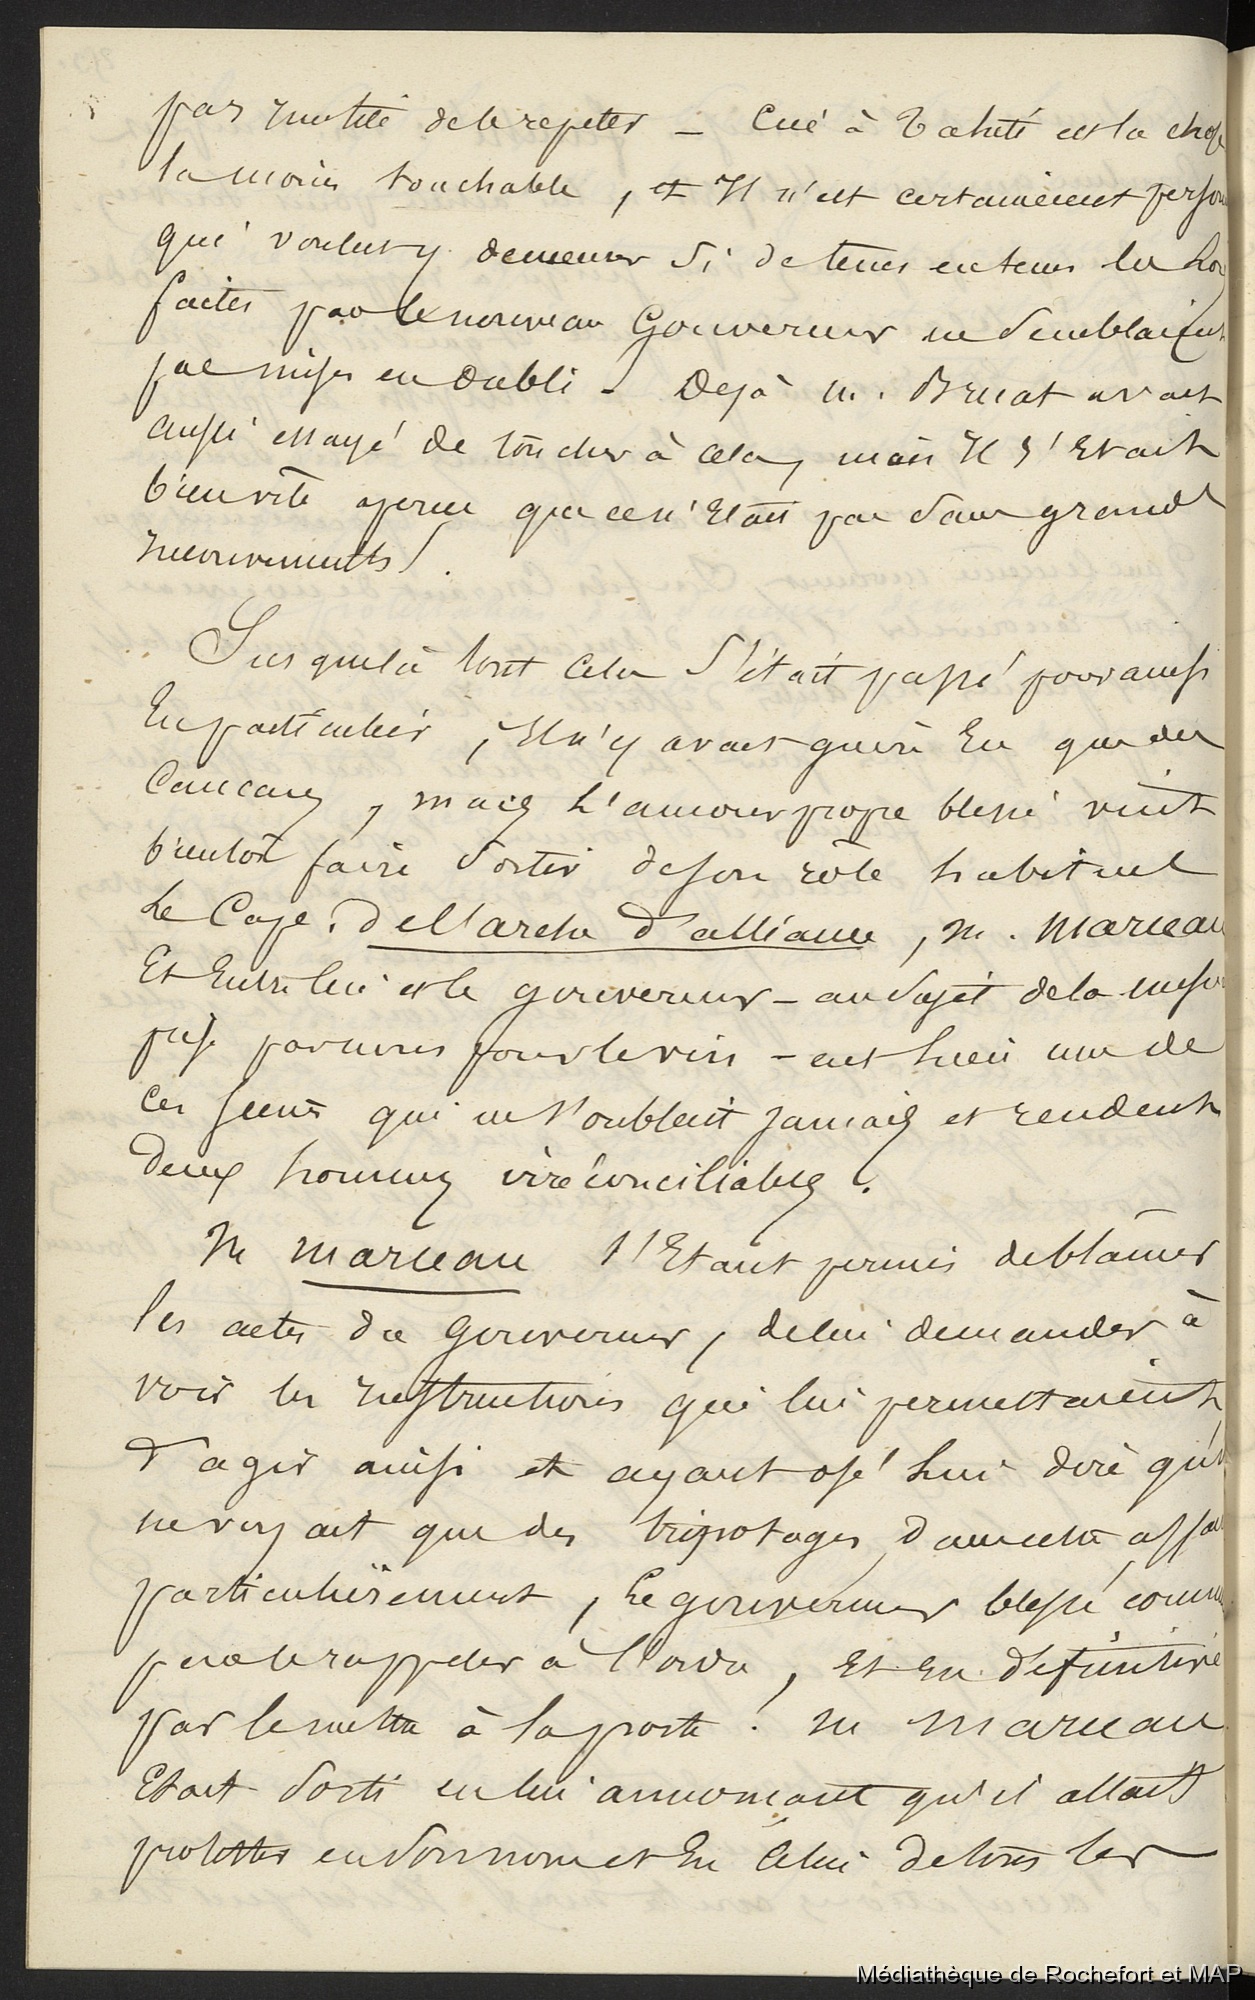 pas inutile de le repeter – Cué à Tahiti est la chose
la moins touchable, et Il n'est certainement person
qui voulut y demeurer Si de tems en tems les
faites par le nouveau Gouverneur ne Semblaient
pas mises en oubli – Dejà M. Bruat avait
aussi essayé de toucher à cela, mais Il S'Etait
bien vite aperçu que ce n'Etait pas Sans grands
inconvenients.
Jusques là tout cela S'était passé pour ainsi
En particulier, Il n'y avait guère Eu que des
Cancans, mais L'amour propre blessé vint
bientot faire Sortir de son rôle habituel
Le Cape. de l'arche d'alliance, M. Marceau
Et Entre lui et le gouverneur – au Sujet de la mesu
prise par nous pour le vin – eut Lieu une de
ces scenes qui ne s'oublent jamais et rendent
deux hommes irréconciliables.
M Marceau s'Etant permis de blâmer
les actes du Gouverneur, de lui demander à
voir les Instructions qui lui permettaient
d'agir ainsi et ayant osé Lui dire qu'il
ne voyait que des tripotages dans cette affai
particulièrement, Le gouverneur blessé comm
par le rappeler à l'ordre, Et En définitive
par le mettre à la porte! M Marceau
Etait Sorti en lui annonçant qu'il allait
protester en Son nom et En Celui de tous les
Médiathèque de Rochefort et MAP